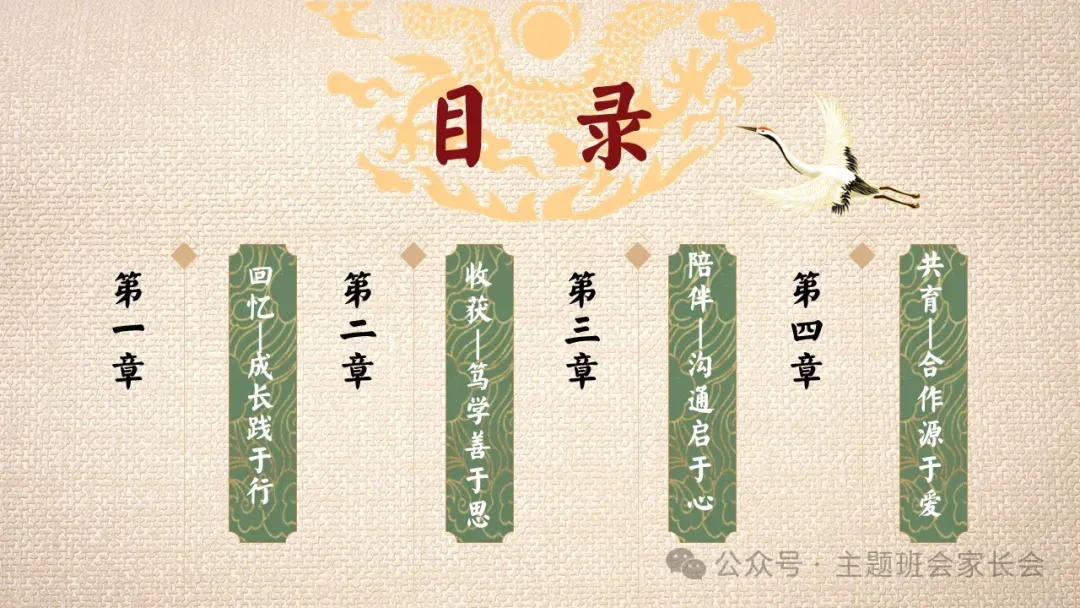 目 录
第一章
回忆—成长践于行
第二章
收获—笃学善于思
第三章
陪伴—沟通启于心
第四章
共育—合作源于爱
公众号·主题班会家长会